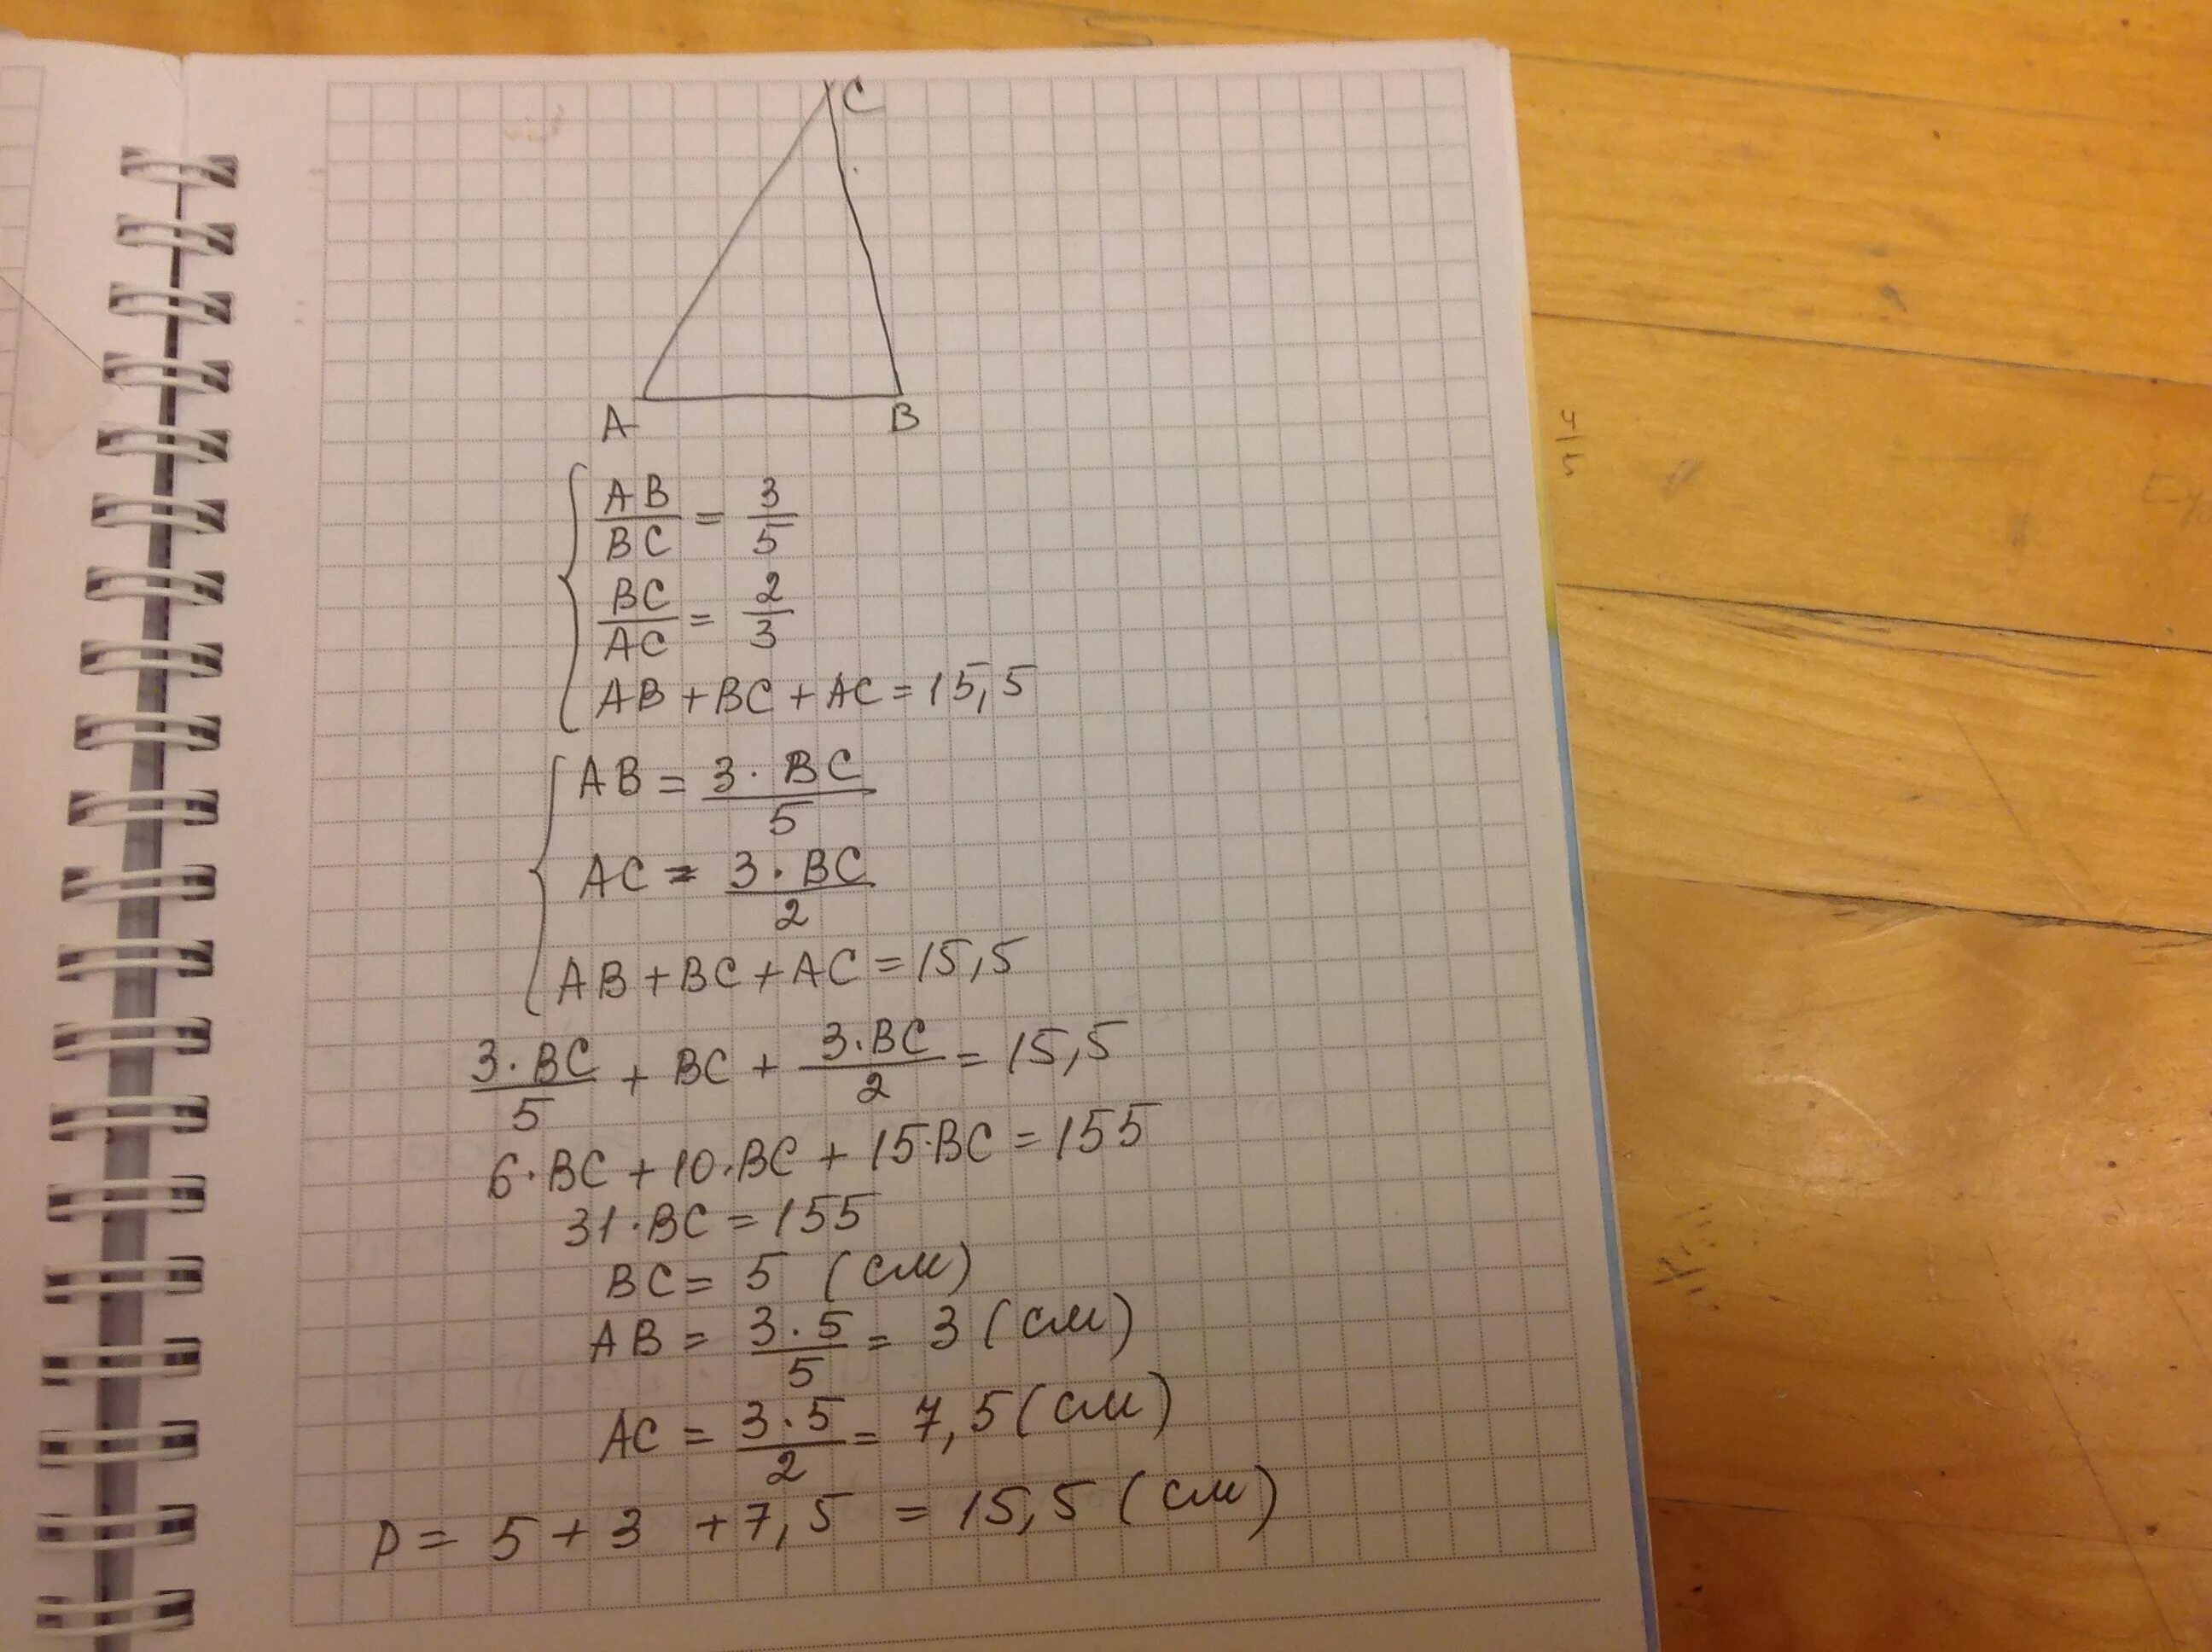 C
A B
AB/BC = 3/5
BC/AC = 2/3
AB + BC + AC = 15,5
AB = 3 · BC/5
AC = 3 · BC/2
AB + BC + AC = 15,5
3 · BC/5 + BC + 3 · BC/2 = 15,5
6 · BC + 10 · BC + 15 · BC = 155
31 · BC = 155
BC = 5 (см)
AB = 3 · 5/5 = 3 (см)
AC = 3 · 5/2 = 7,5 (см)
P = 5 + 3 + 7,5 = 15,5 (см)